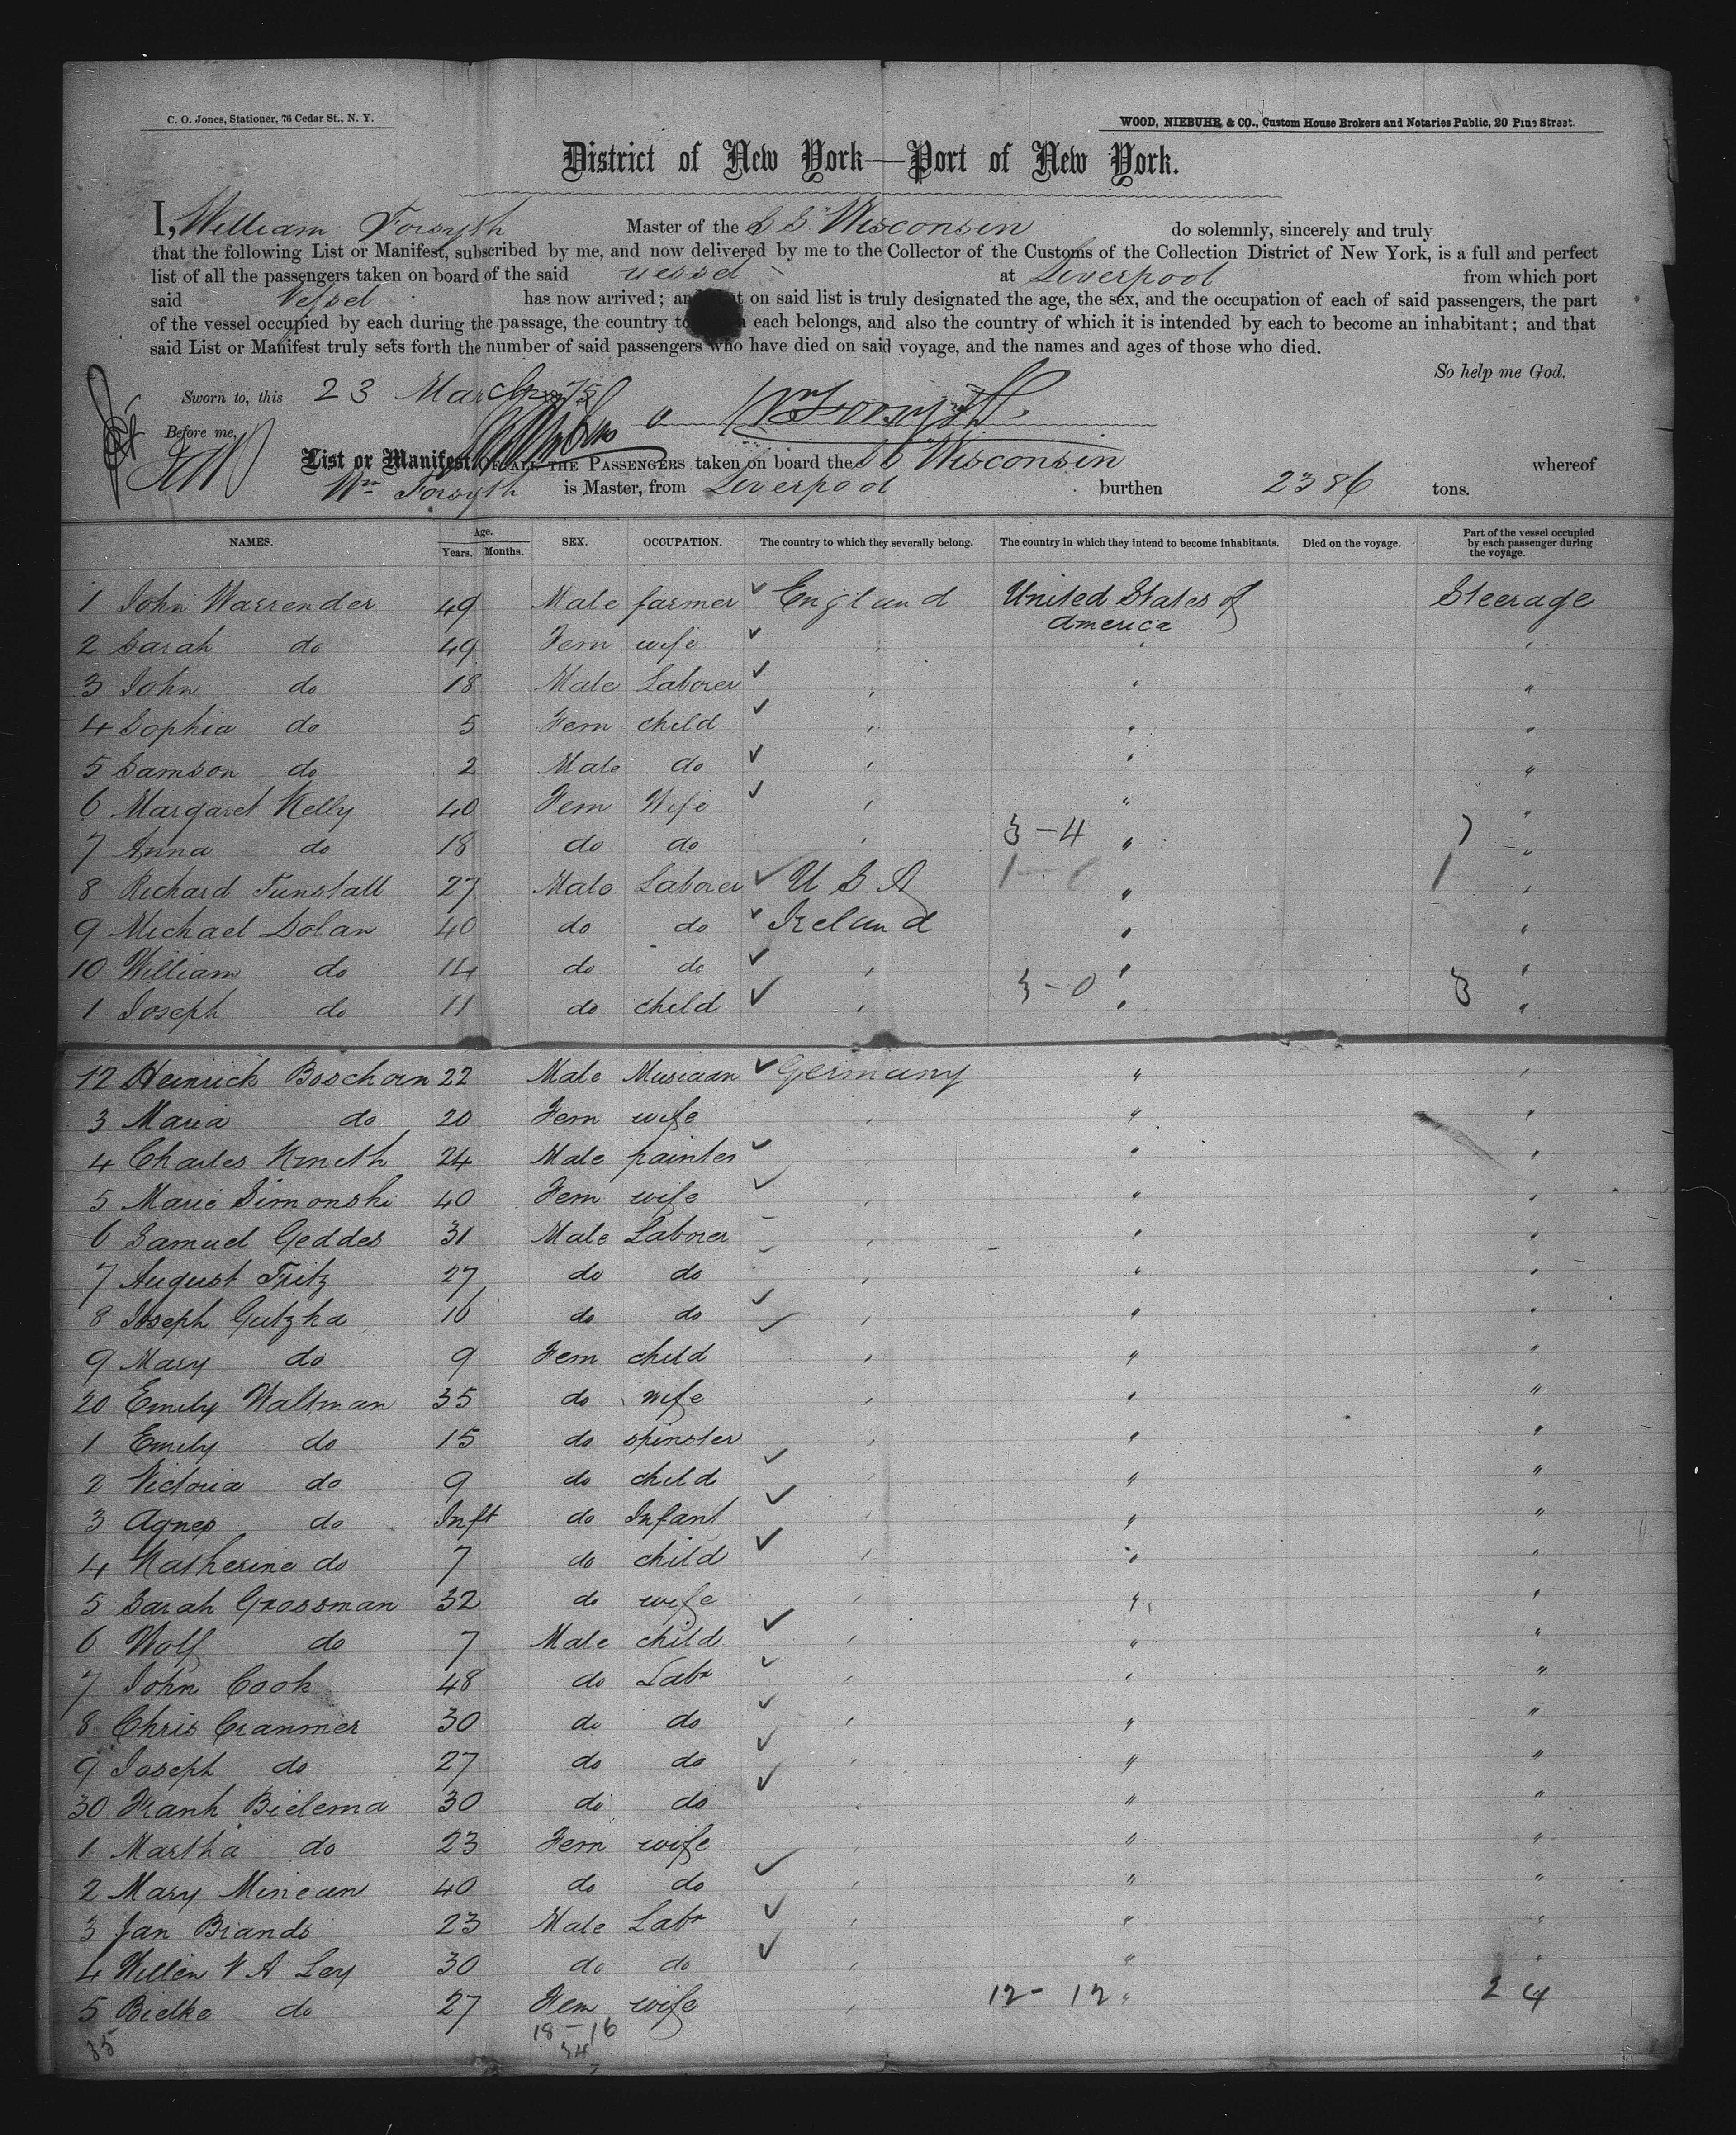 C. O. Jones, Stationer, 76 Cedar St., N. Y.
WOOD, NIEBUHR & CO., Custom House Brokers and Notaries Public, 20 Pine Street.
District of New York—Port of New York.
I, William Forsyth Master of the S S "Wisconsin do solemnly, sincerely and truly
that the following List or Manifest, subscribed by me, and now delivered by me to the Collector of the Customs of the Collection District of New York, is a full and perfect
list of all the passengers taken on board of the said vessel at Liverpool from which port
said Vessel has now arrived; on said list is truly designated the age, the sex, and the occupation of each of said passengers, the part
of the vessel occupied by each during the passage, the country to each belongs, and also the country of which it is intended by each to become an inhabitant; and that
said List or Manifest truly sets forth the number of said passengers who have died on said voyage, and the names and ages of those who died.
So help me God.
Sworn to, this 23 March 75
Wm Forsyth
Before me,
List or Manifest OF ALL THE PASSENGERS taken on board the S S "Wisconsin whereof
Wm Forsyth is Master, from Liverpool burthen 2386 tons.
NAMES. Age. Years. Months. SEX. OCCUPATION. The country to which they severally belong. The country in which they intend to become inhabitants. Died on the voyage. Part of the vessel occupied by each passenger during the voyage.
1 John Warrender 49 Male farmer England United States of America Steerage
2 Sarah do 49 Fem wife " " "
3 John do 18 Male Laborer " " "
4 Sophia do 5 Fem child " " "
5 Samson do 2 Male do " " "
6 Margaret Kelly 40 Fem Wife " " "
7 Anna do 18 do do " 3-4 " 7 "
8 Richard Tunstall 27 Male Laborer U S A " 1 "
9 Michael Dolan 40 do do Ireland " "
10 William do 14 do do " " "
1 Joseph do 11 do child " 3-0 " 3 "
12 Heinrick Boschorn 22 Male Musician Germany " "
3 Maria do 20 Fem wife " " "
4 Charles 24 Male painter " "
5 Marie Simonski 40 Fem wife " " "
6 Samuel Geddes 31 Male Laborer " " "
7 August Fritz 27 do do " " "
8 Joseph Gutzka 16 do do " " "
9 Mary do 9 Fem child " " "
20 Emily Waltman 35 do wife " " "
1 Emily do 15 do spinster " " "
2 Victoria do 9 do child " " "
3 Agnes do Inft do Infant " " "
4 Katherine do 7 do child " " "
5 Sarah Grossman 32 do wife " " "
6 Wolf do 7 Male child " " "
7 John Cook 48 do Labr " " "
8 Chris Cranmer 30 do do " " "
9 Joseph do 27 do do " " "
30 Frank Bielema 30 do do " " "
1 Martha do 23 Fem wife " " "
2 Mary Minean 40 do do " " "
3 Jan Brands 23 Male Labr " " "
4 Willen V A Ley 30 do do " " "
5 Bielke do 27 Fem wife " 12-12 " 24
18-16
35 34